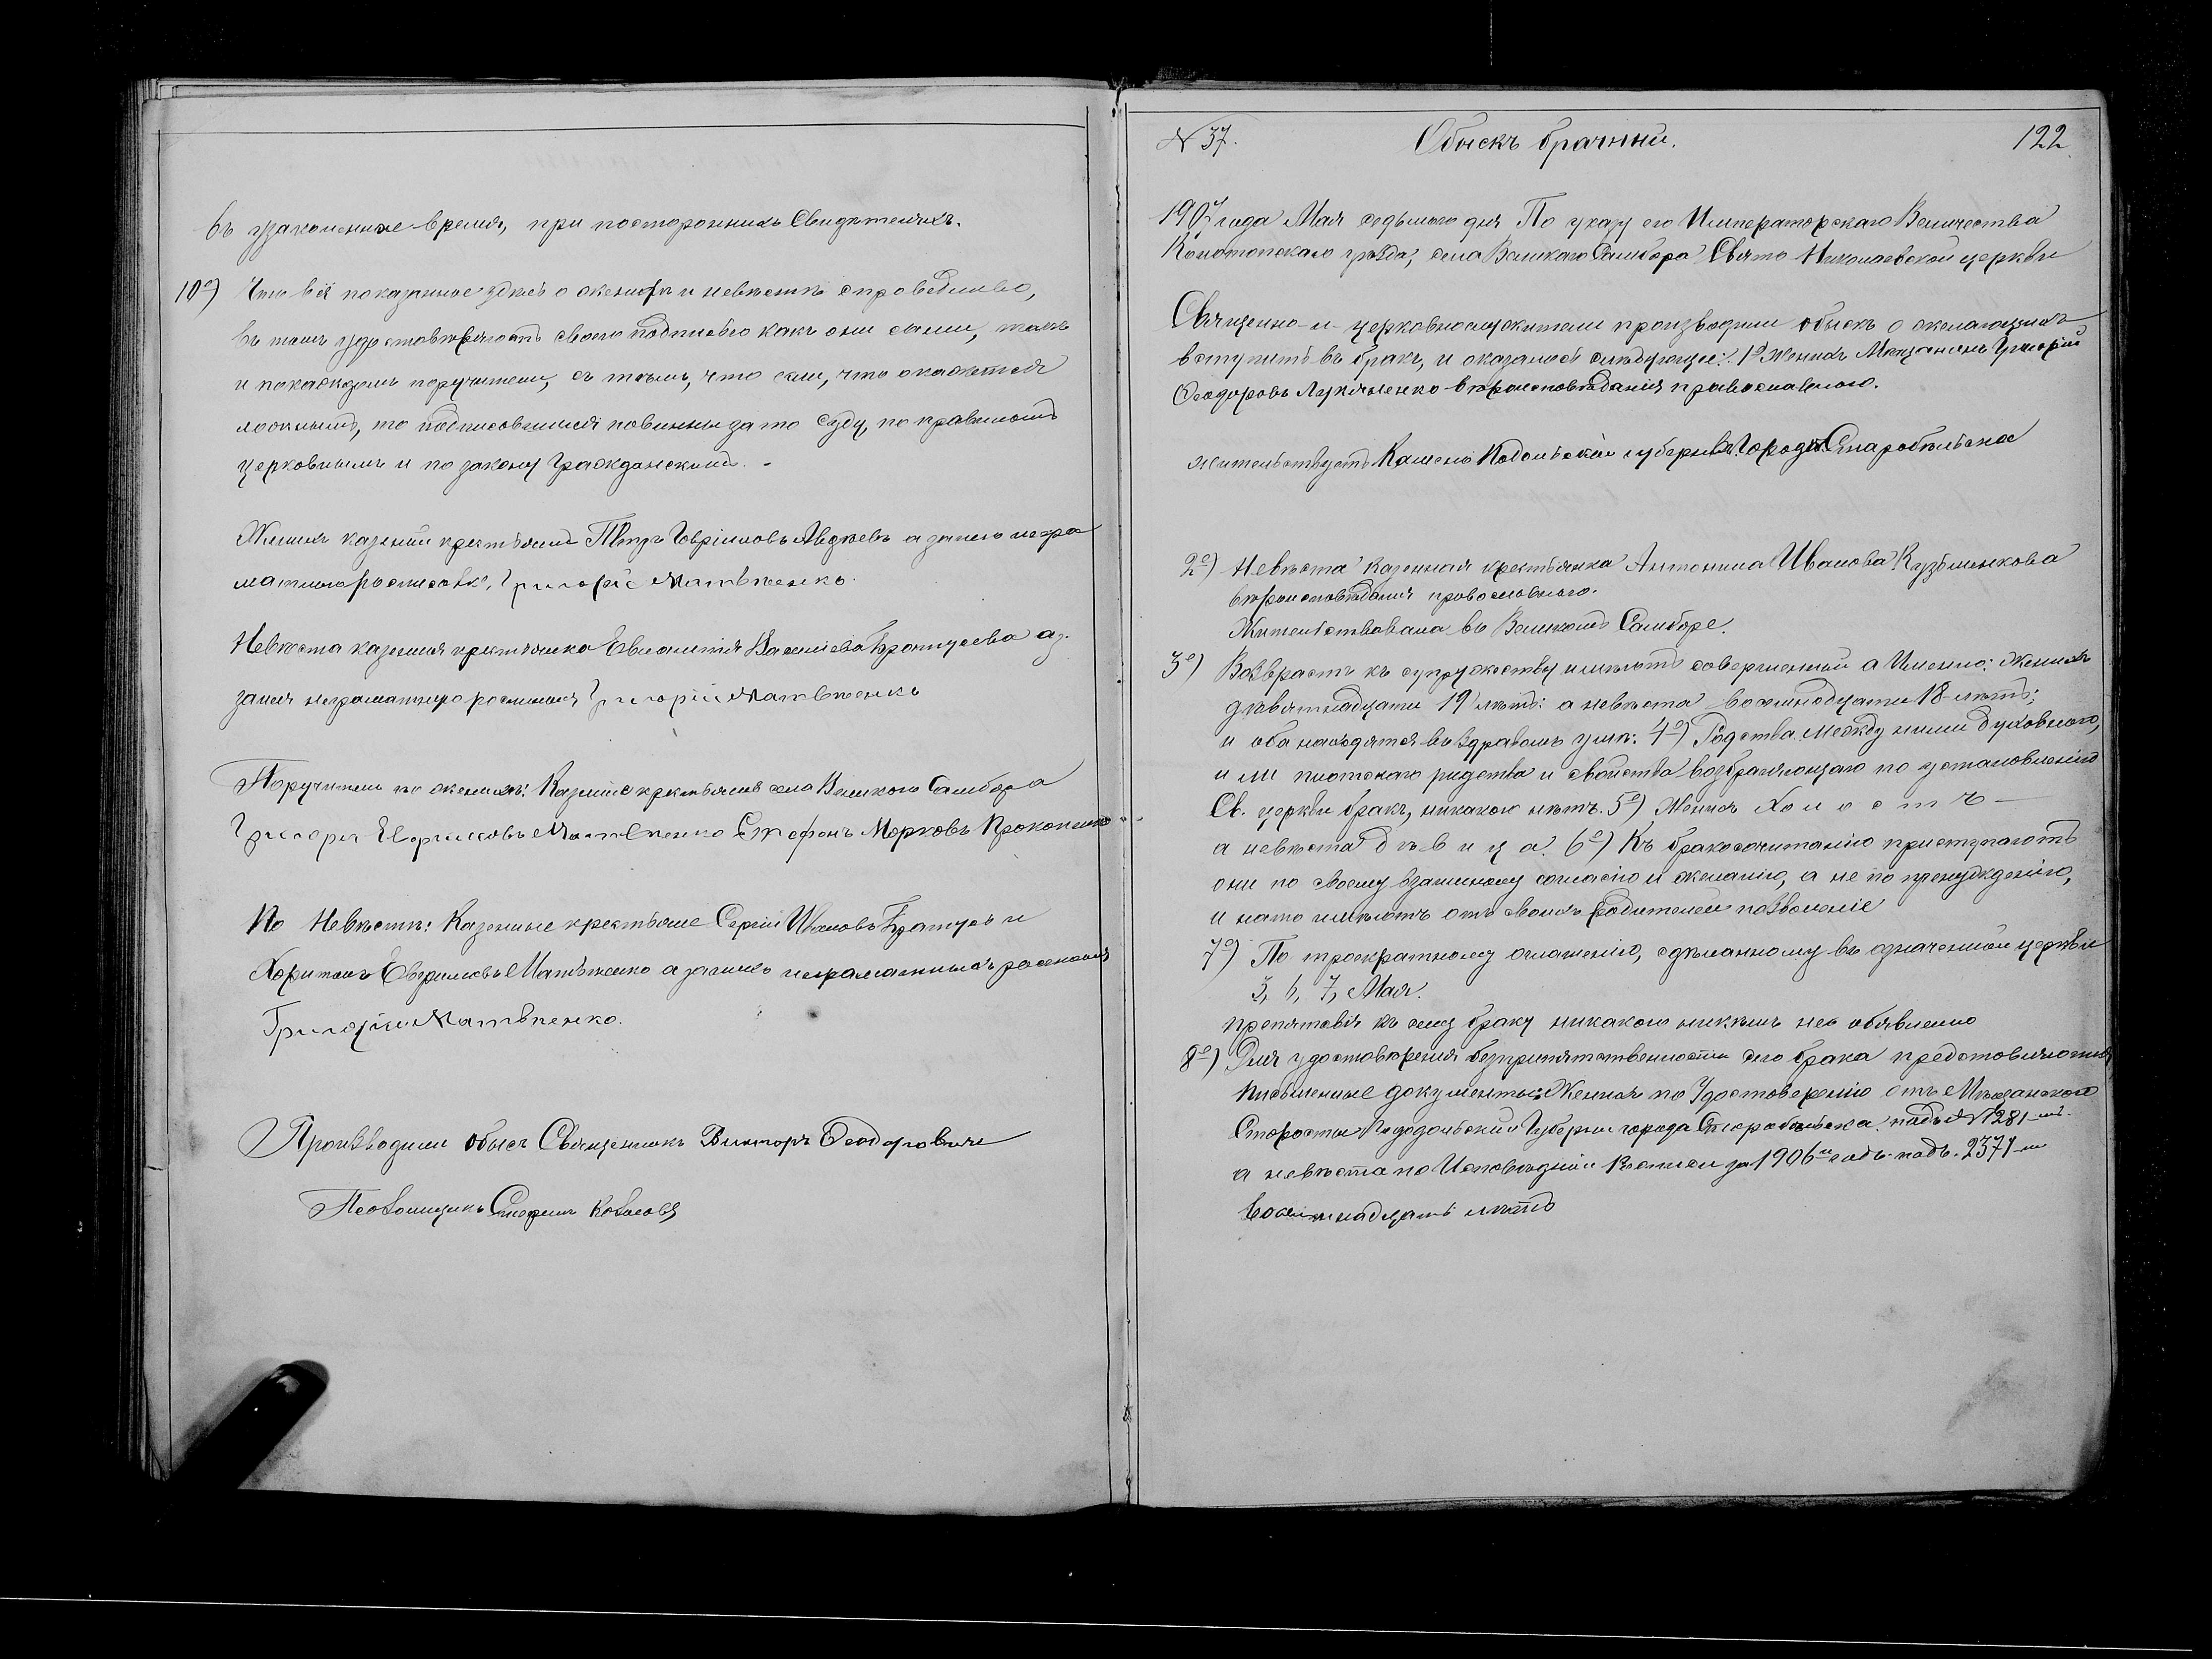 въ узаконенное время, при постороннихъ Свидѣтеляхъ.
10е) Что всё показанное здѣсь о женихѣ и невѣстѣ справедливо,
въ томъ удостовѣряютъ своею подписью какъ они сами, такъ
и покаждомъ поручители, съ тѣмъ, что если, что окажется
ложнымъ, то подписовшіеся повинны за то Суду, по правиламъ
церковнымъ и по закону Гражданскимъ.
Женихъ казеный крестьянинъ Петръ Гавріиловъ Авдѣевъ а занего негра
матнаго росписовк. Григорій Матвѣенко.
Невѣста казенная крестьянка Евлампія Василіева Братусева а
занея неграматную росписался Григорій Матвѣенко
Поручители по женихѣ: Казеные крестьяне села Великого Самбора
Григорій Матвѣенко Стефанъ Марковъ Прокопенко
По Невѣстѣ: Казенные крестьяне Сергій Ивановъ Братусь и
Харитонъ Матвѣенко а занихъ неграматныхъ росписался
Григорій Матвѣенко.
Производили обыскъ Священникъ Викторъ Ѳеодоровичъ
Псаломщикъ
N 37. Обыскъ брачный. 122
1907 года Мая седьмого дня По указу его Императорскаго Величества
Конотопскаго уѣзда, села Великаго Самбора Свято Николаевской церкви
Священно-и-церковнослужители производили обыскъ о желающихъ
вступить въ бракъ, и оказалось слѣдующее: 1е Женихъ Мѣщанинъ Григорій
Ѳеодоровъ Лукьяненко вѣроисповѣданія православного.
жительствуетъ Подольской губерніи города Старобѣльска
2е) Невѣста казенная крестьянка Антонина Иванова Кузьменкова
вѣроисповѣданія провословного.
Жительствовала въ Великомъ Самборе.
3е) Возврастъ къ супружеству имѣютъ совершенный а Именно: женихъ
девятнадцати 19 лѣтъ: а невѣста восемнодцати 18 лѣтъ;
и оба находятся въ здравомъ умѣ: 4е) Родства между ними духовного,
или плотскаго родства и свойства возбраняющаго по установленію
Св. церкви бракъ, никакого нѣтъ. 5е) Женихъ Холостъ
а невѣста дѣвица. 6е) Къ бракосочитанію приступаютъ
они по своему взаимному согласію и желанію, а не по принужденію,
и нато имѣютъ отъ своихъ родителей позволеніе
7е) По троекратному оглашенію, сдѣланному въ означенной церкви
3, 6, 7, Мая.
препятствія къ сему браку никакого никѣмъ не обявленно
8е) Для удостовѣренія безприпятственности сего брака предстовляются
письменные документы: Женихъ по Удостоверенію отъ Мѣщанского
Старосты Губерніи города Старобѣльска подъ N 281-мъ.
а невѣста по Исповѣдной Росписи за 1906й годъ подъ. 2371-м
восемнадцать лѣтъ